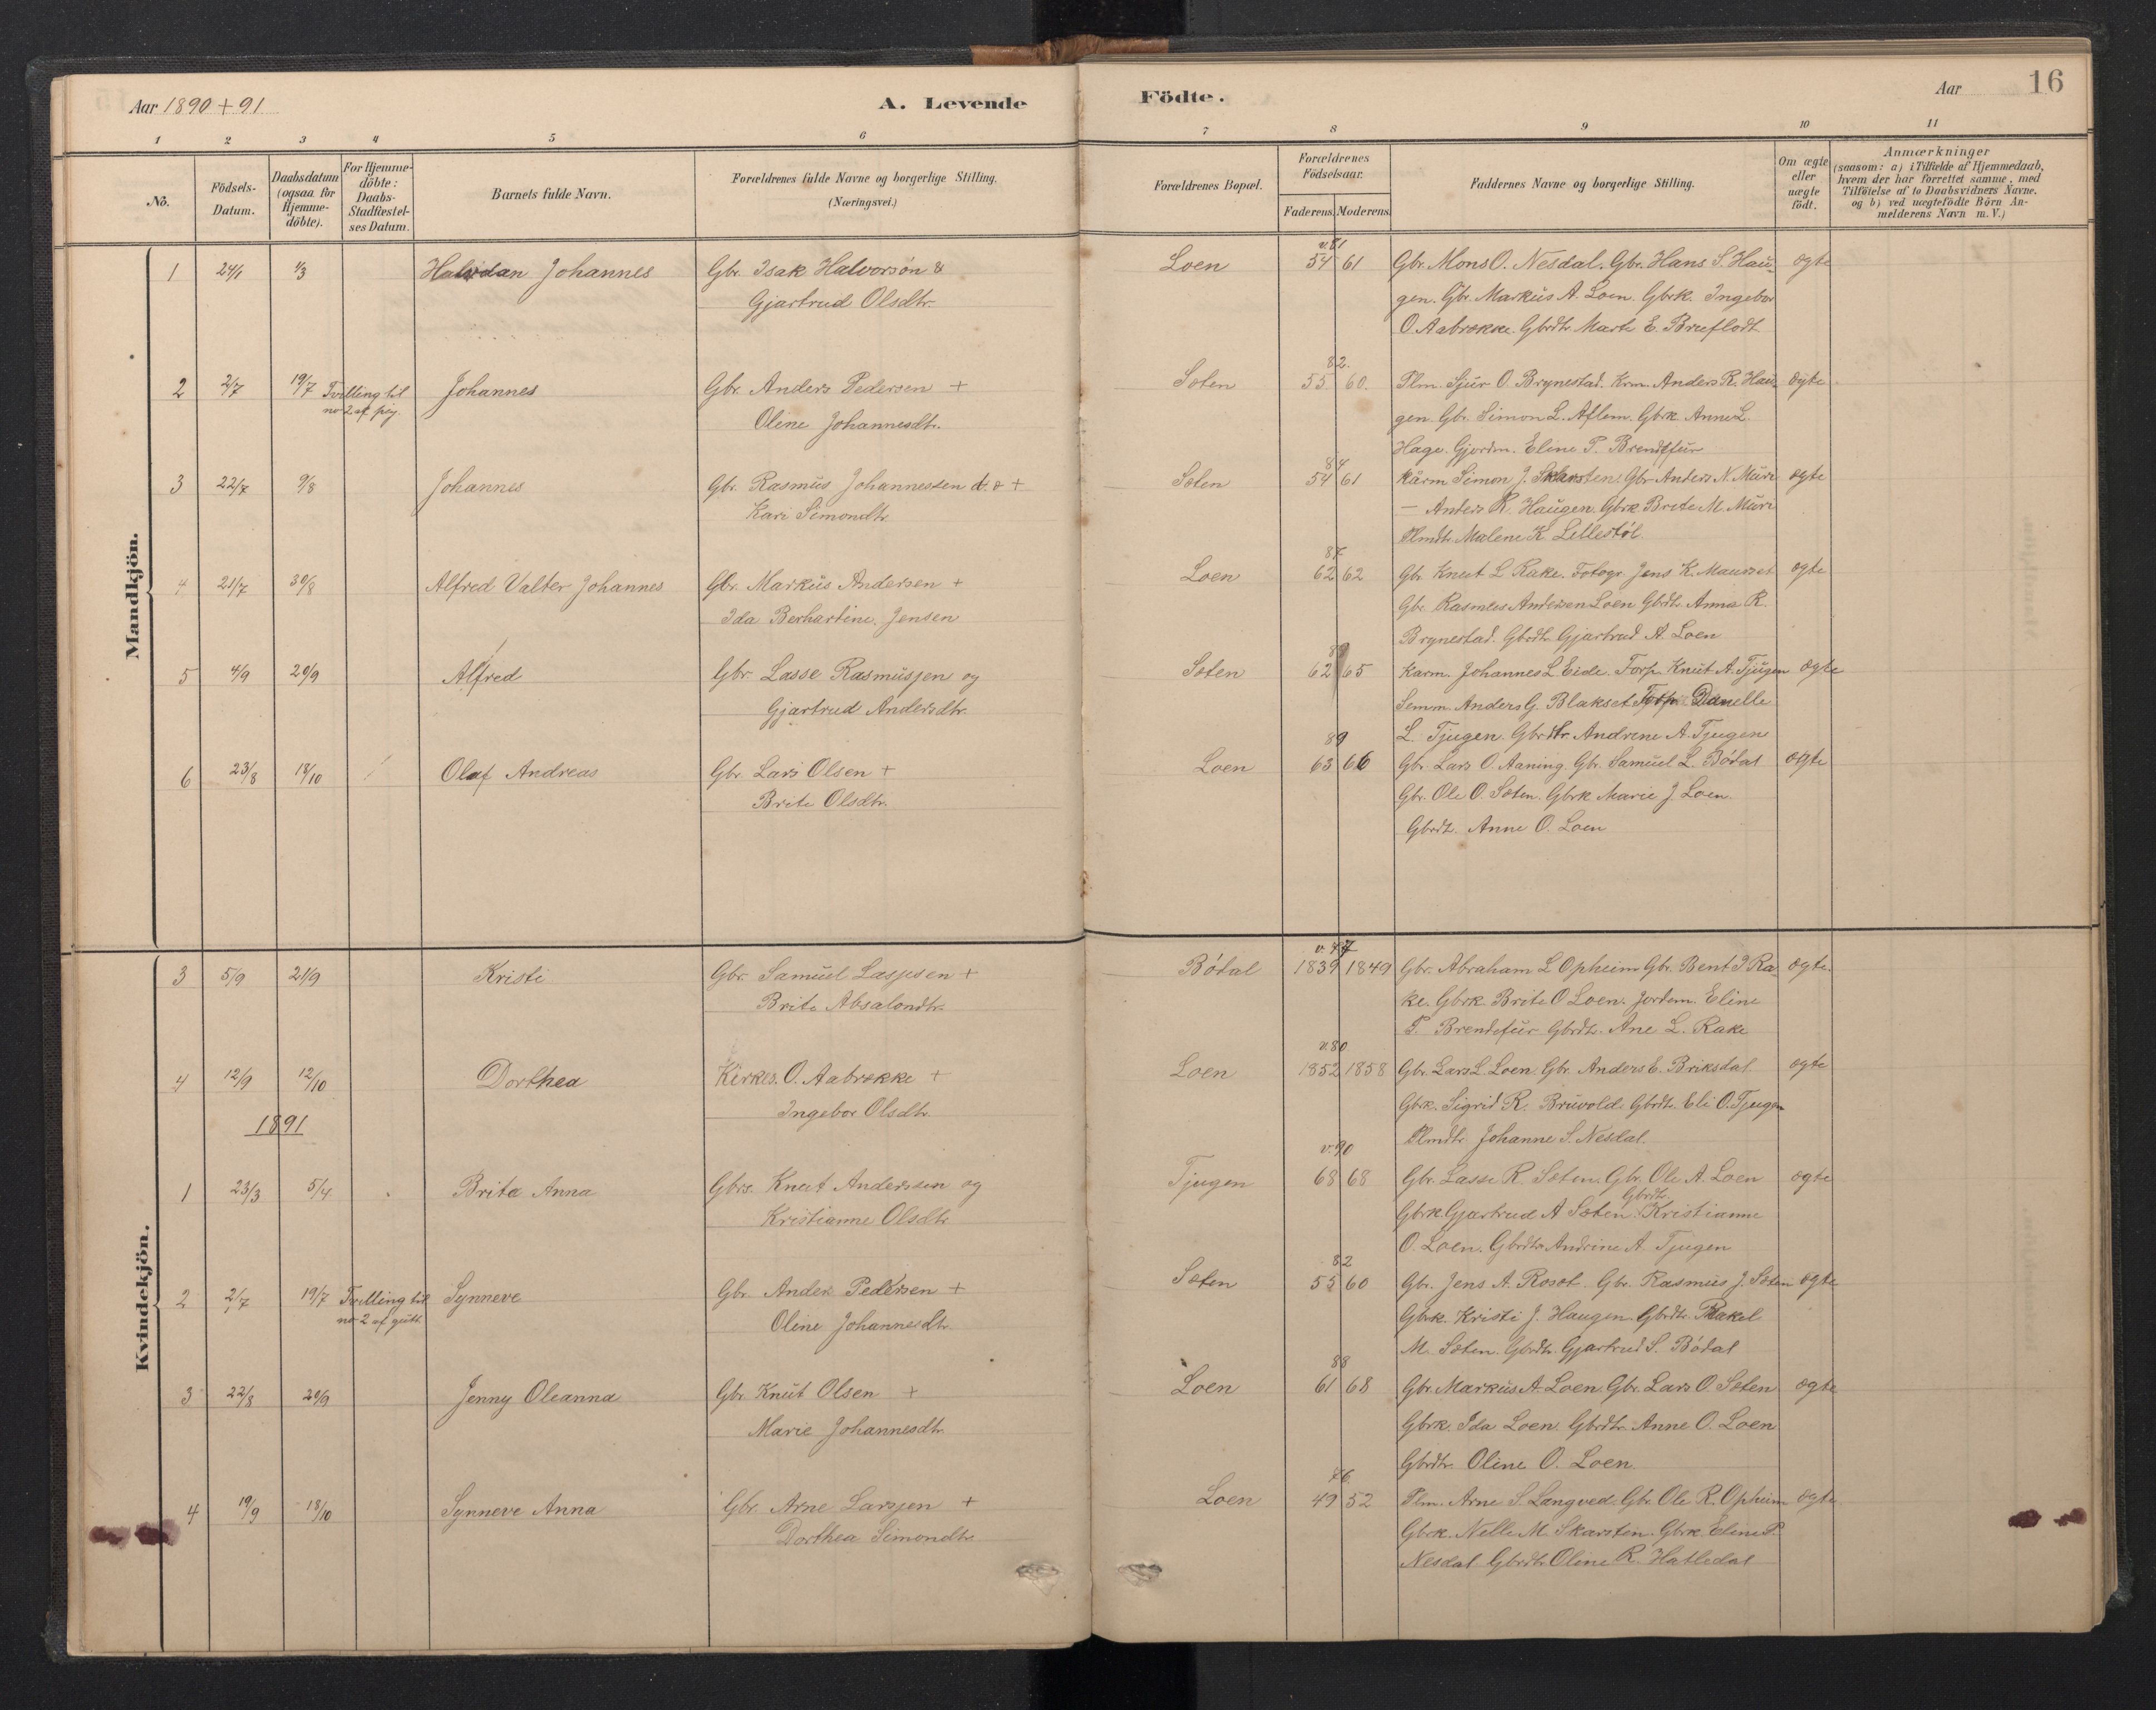 Aar 1890 + 91
A. Levende Födte.
Aar 16
1 2 3 4 5 6 7 8 9 10 11
No.
Födsels-Datum.
Daabsdatum (ogsaa for Hjemme-döbte).
For Hjemme-döbte: Daabs-Stadfæstel-ses Datum.
Barnets fulde Navn.
Forældrenes fulde Navne og borgerlige Stilling. (Næringsvei.)
Forældrenes Bopæl.
Forældrenes Födselsaar.
Faderens. Moderens.
Faddernes Navne og borgerlige Stilling.
Om ægte eller uægte födt.
Anmærkninger
(saasom: a) i Tilfælde af Hjemmedaab,
hvem der har forrettet samme, med
Tilföielse af to Daabsvidners Navne.
og b) ved uægtefödte Börn An-
melderens Navn m. V.)
Mandkjön.
v. 81
1 24/1 1/3 Halvdan Johannes Gbr. Isak Halvorsøn & Loen 54 61 Gbr. Mons O. Nesdal. Gbr. Hans S. Hau- ægte
Gjartrud Olsdtr. gen. Gbr. Markus A. Loen. Gbrk. Ingebor
O. Aabrekke. Gbrdtr. Marte E. Bruflodt
82.
2 2/7 19/7 Tvilling til Johannes Gbr. Anders Pedersen + Sæten 55 60. Plm. Sjur O. Brynestad. Krm. Anders R. Hau- ægte
no 2 af pig. Oline Johannesdtr. gen. Gbr. Simon L. Aflem. Gbrk Anne L.
Hage. Gjordm. Eline P. Brendefur
84
3 22/7 9/8 Johannes Gbr. Rasmus Johannessen d. æ + Sæten 54 61 Kårm Simon J. Skarsten. Gbr Anders N. Muri ægte
Kari Simondtr. — Anders R. Haugen. Gbrk Brite M. Muri
Plmdtr. Malene K Lillestøl.
87
4 21/7 30/8 Alfred Valter Johannes Gbr. Markus Andersen + Loen 62 62 Gbr. Knut L Rake. Fotogr. Jens K. Maurset ægte
Ida Berhartine Jensen Gbr. Rasmus Andersen Loen Gbrdt. Anna R.
Brynestad. Gbrdtr. Gjartrud A. Loen
5 4/9 20/9 Alfred Gbr. Lasse Rasmusjen og Sæten 62 65 Karm. Johannes L Eide. Forp. Knut A. Tjugen ægte
Gjartrud Andersdtr. Semm. Anders G. Blakset Danelle
89 L. Tjugen. Gbrdtr. Andrine A. Tjugen
6 23/8 18/10 Olaf Andreas Gbr. Lars Olsen + Loen 63 66 Gbr. Lars O. Aaning. Gbr. Samuel L. Bødal ægte
Brite Olsdtr. Gbr. Ole O. Sæten. Gbrk Marie J. Loen.
Gbrdt. Anne O. Loen
Kvindekjön.
v. 77
3 5/9 21/9 Kristi Gbr. Samuel Lasjesen + Bødal 1839 1849 Gbr. Abraham L Opheim Gbr. Bent I Ra- ægte.
Brite Absalondtr. ke. Gbrk. Brite O Loen. Jordem. Eline
P. Brendefur Gbrdt. Ane L. Rake
v. 80
4 12/9 12/10 Dorthea Kirkes. O. Aabrekke + Loen 1852 1858 Gbr. Lars L. Loen. Gbr. Anders E. Briksdal. ægte
Ingebor Olsdtr. Gbrk. Sigrid R. Bruvold. Gbrdt. Eli O. Tjugen
1891 Plmdtr. Johanne S. Nesdal.
v. 90
1 23/3 5/4 Brita Anna Gbrs. Knut Anderssen og Tjugen 68 68 Gbr. Lasse R. Sæten. Gbr. Ole A. Loen ægte
Kristianne Olsdtr. Gbrk Gjartrud A Sæten. Gbrdt. Kristianne
O. Loen. Gbrdtr. Andrine A. Tjugen
82
2 2/7 19/7 Tvilling til Synneve Gbr. Anders Pedersen + Sæten 55 60 Gbr. Jens A. Rosæt. Gbr. Rasmus J. Sæten ægte
no 2 af gutt. Oline Johannesdtr. Gbrk. Kristi J. Haugen. Gbrdt. Rakel
M. Sæten. Gbrdt. Gjartrud S. Bødal
88
3 22/8 20/9 Jenny Oleanna Gbr. Knut Olsen + Loen 61 68 Gbr. Markus A. Loen. Gbr. Lars O. Sæten ægte
Marie Johannesdtr. Gbrk. Ida Loen. Gbrdtr. Anne O. Loen
Gbrdtr. Oline O. Loen.
76.
4 19/9 18/10 Synneve Anna Gbr. Arne Larsjen + Loen 49 52 Plm. Arne S. Langved. Gbr. Ole R. Opheim ægte.
Dorthea Simondtr. Gbrk. Nelle M. Skarsten. Gbrk. Eline P.
Nesdal. Gbrdtr. Oline R. Hatledal